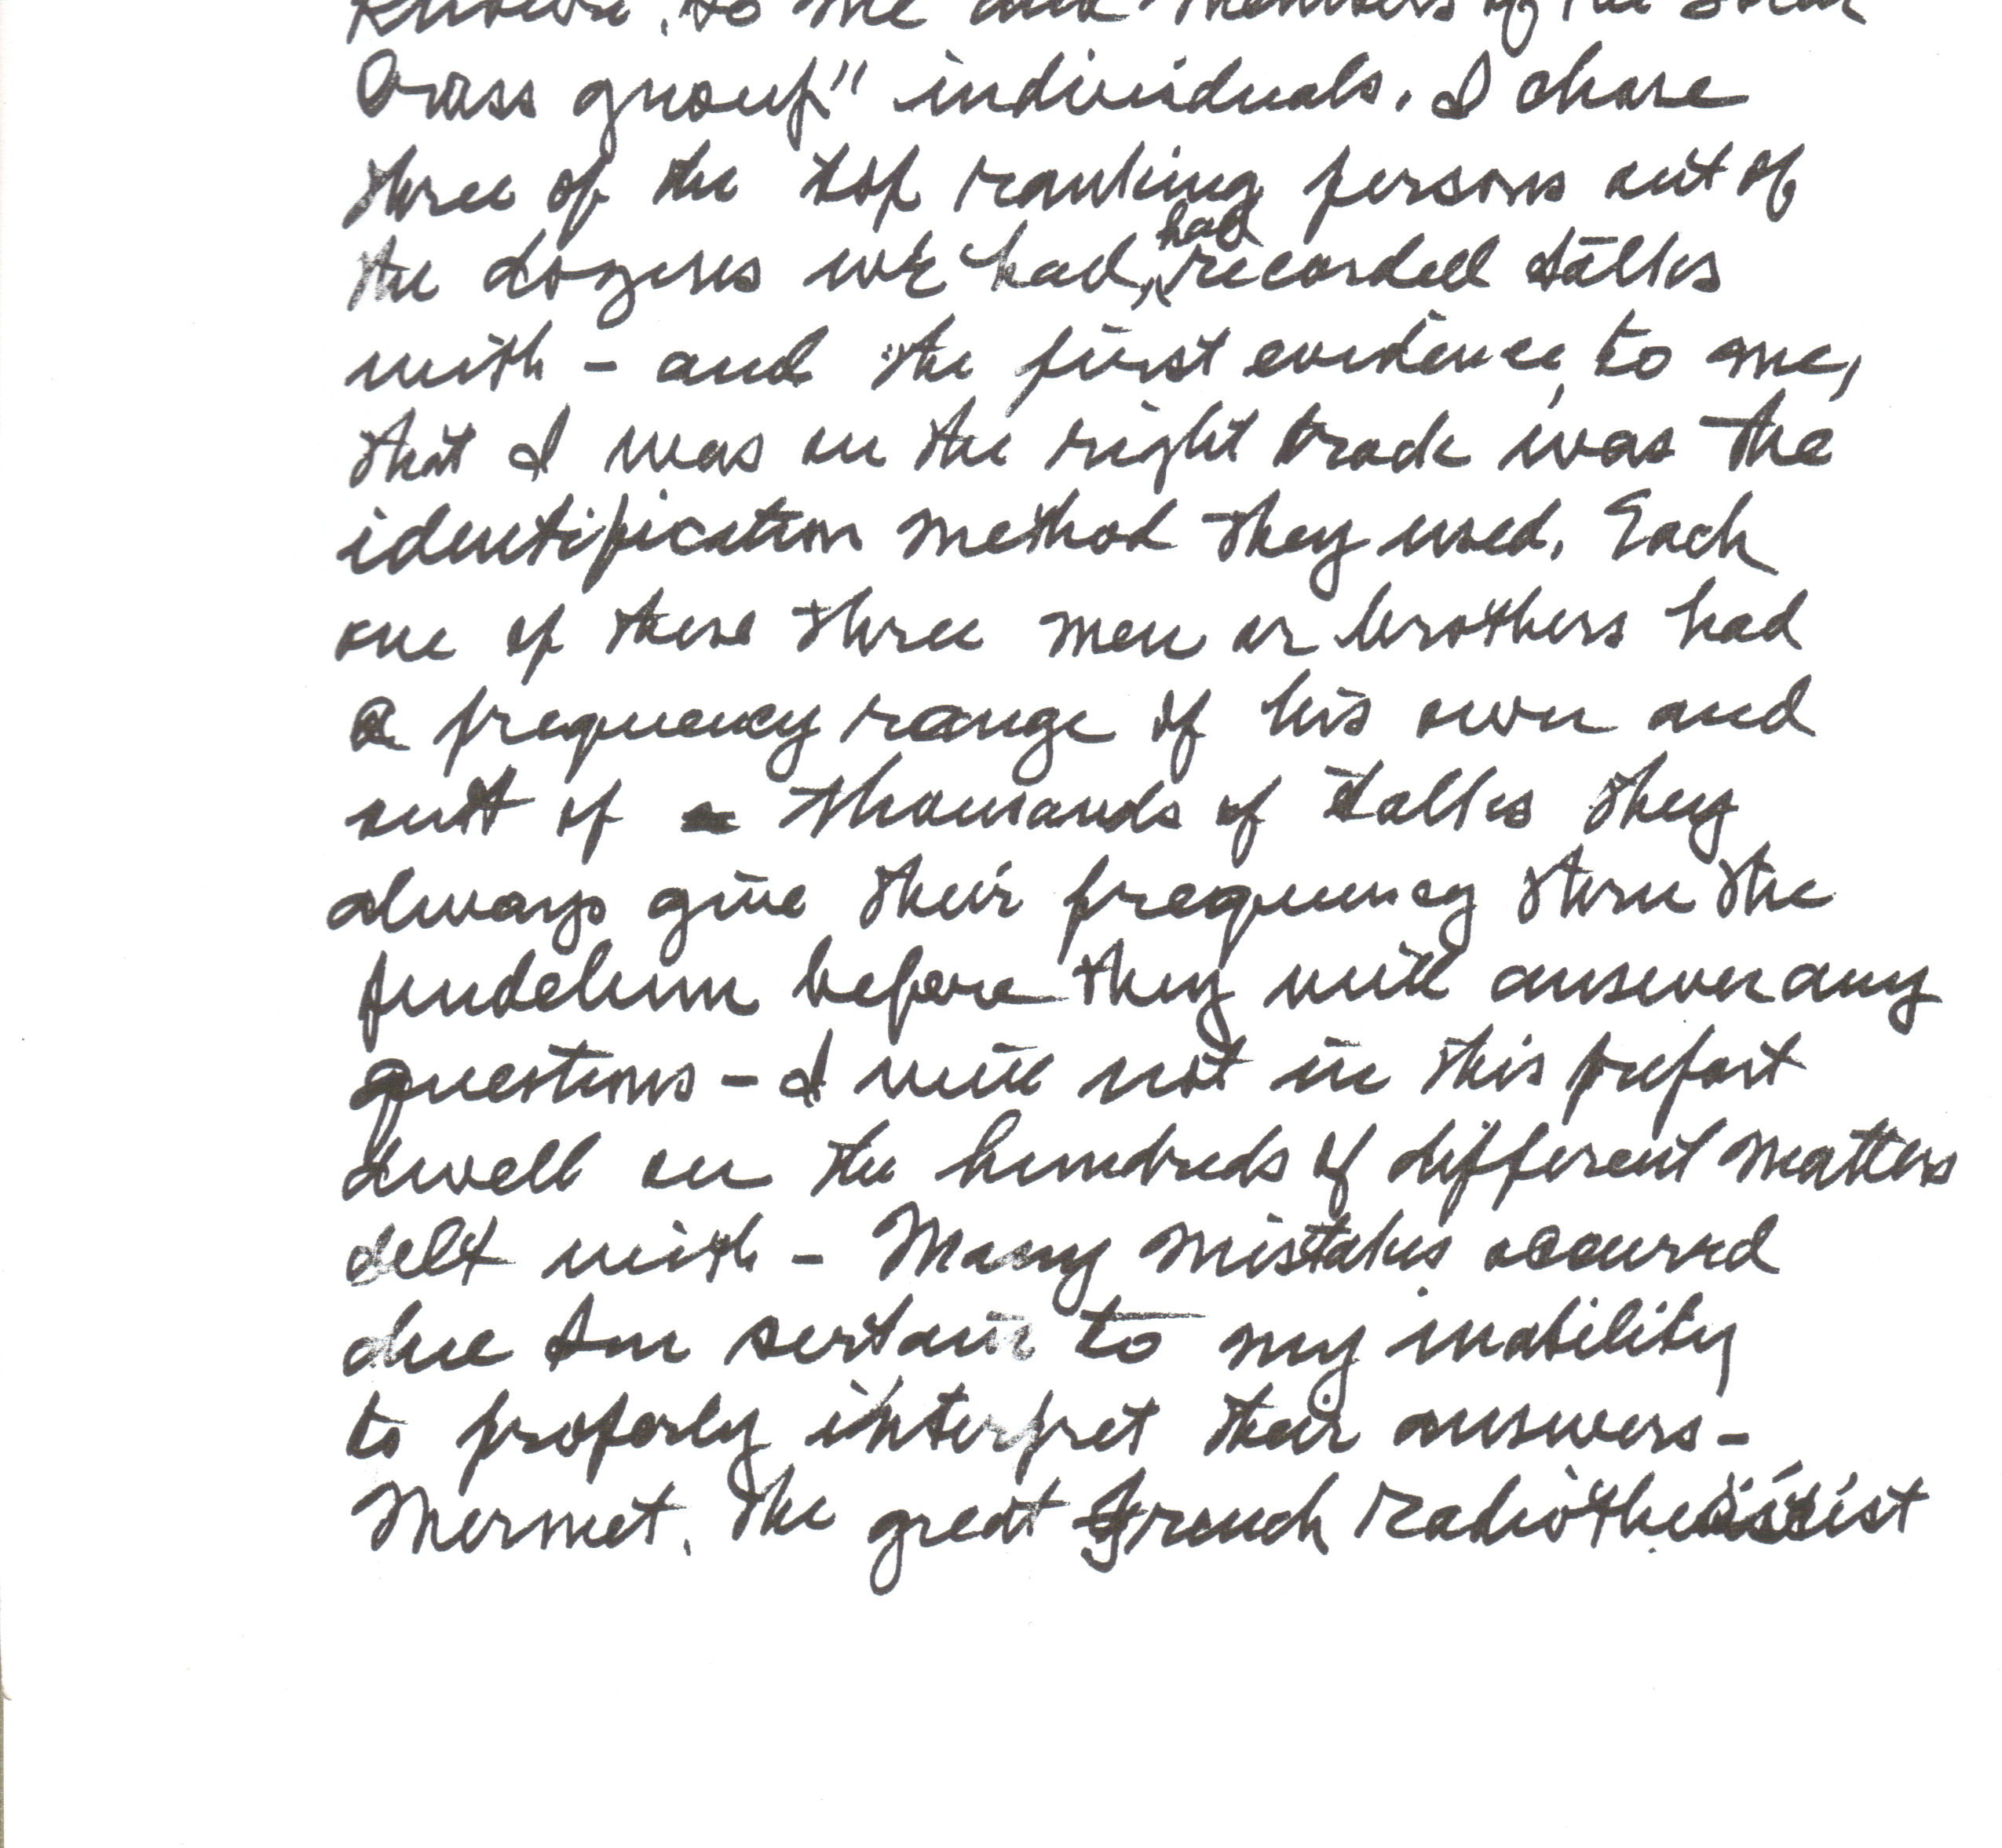 known, to me and members of the Solar
Cross group" individuals. I chose
three of the top ranking persons out of
the dozens we had, had recorded talks
with - and the first evidence, to me,
that I was on the right track was the
identification method they used. Each
one of these three men or brothers had
a frequency range of his own and
out of thousands of talks they
always give their frequency thru the
pendelum before they will answer any
questions - I will not in this
dwell on the hundreds of different matters
delt with - Many mistakes occurred
due am sertain to my inability
to properly interpret their answers -
Mermet, the great French